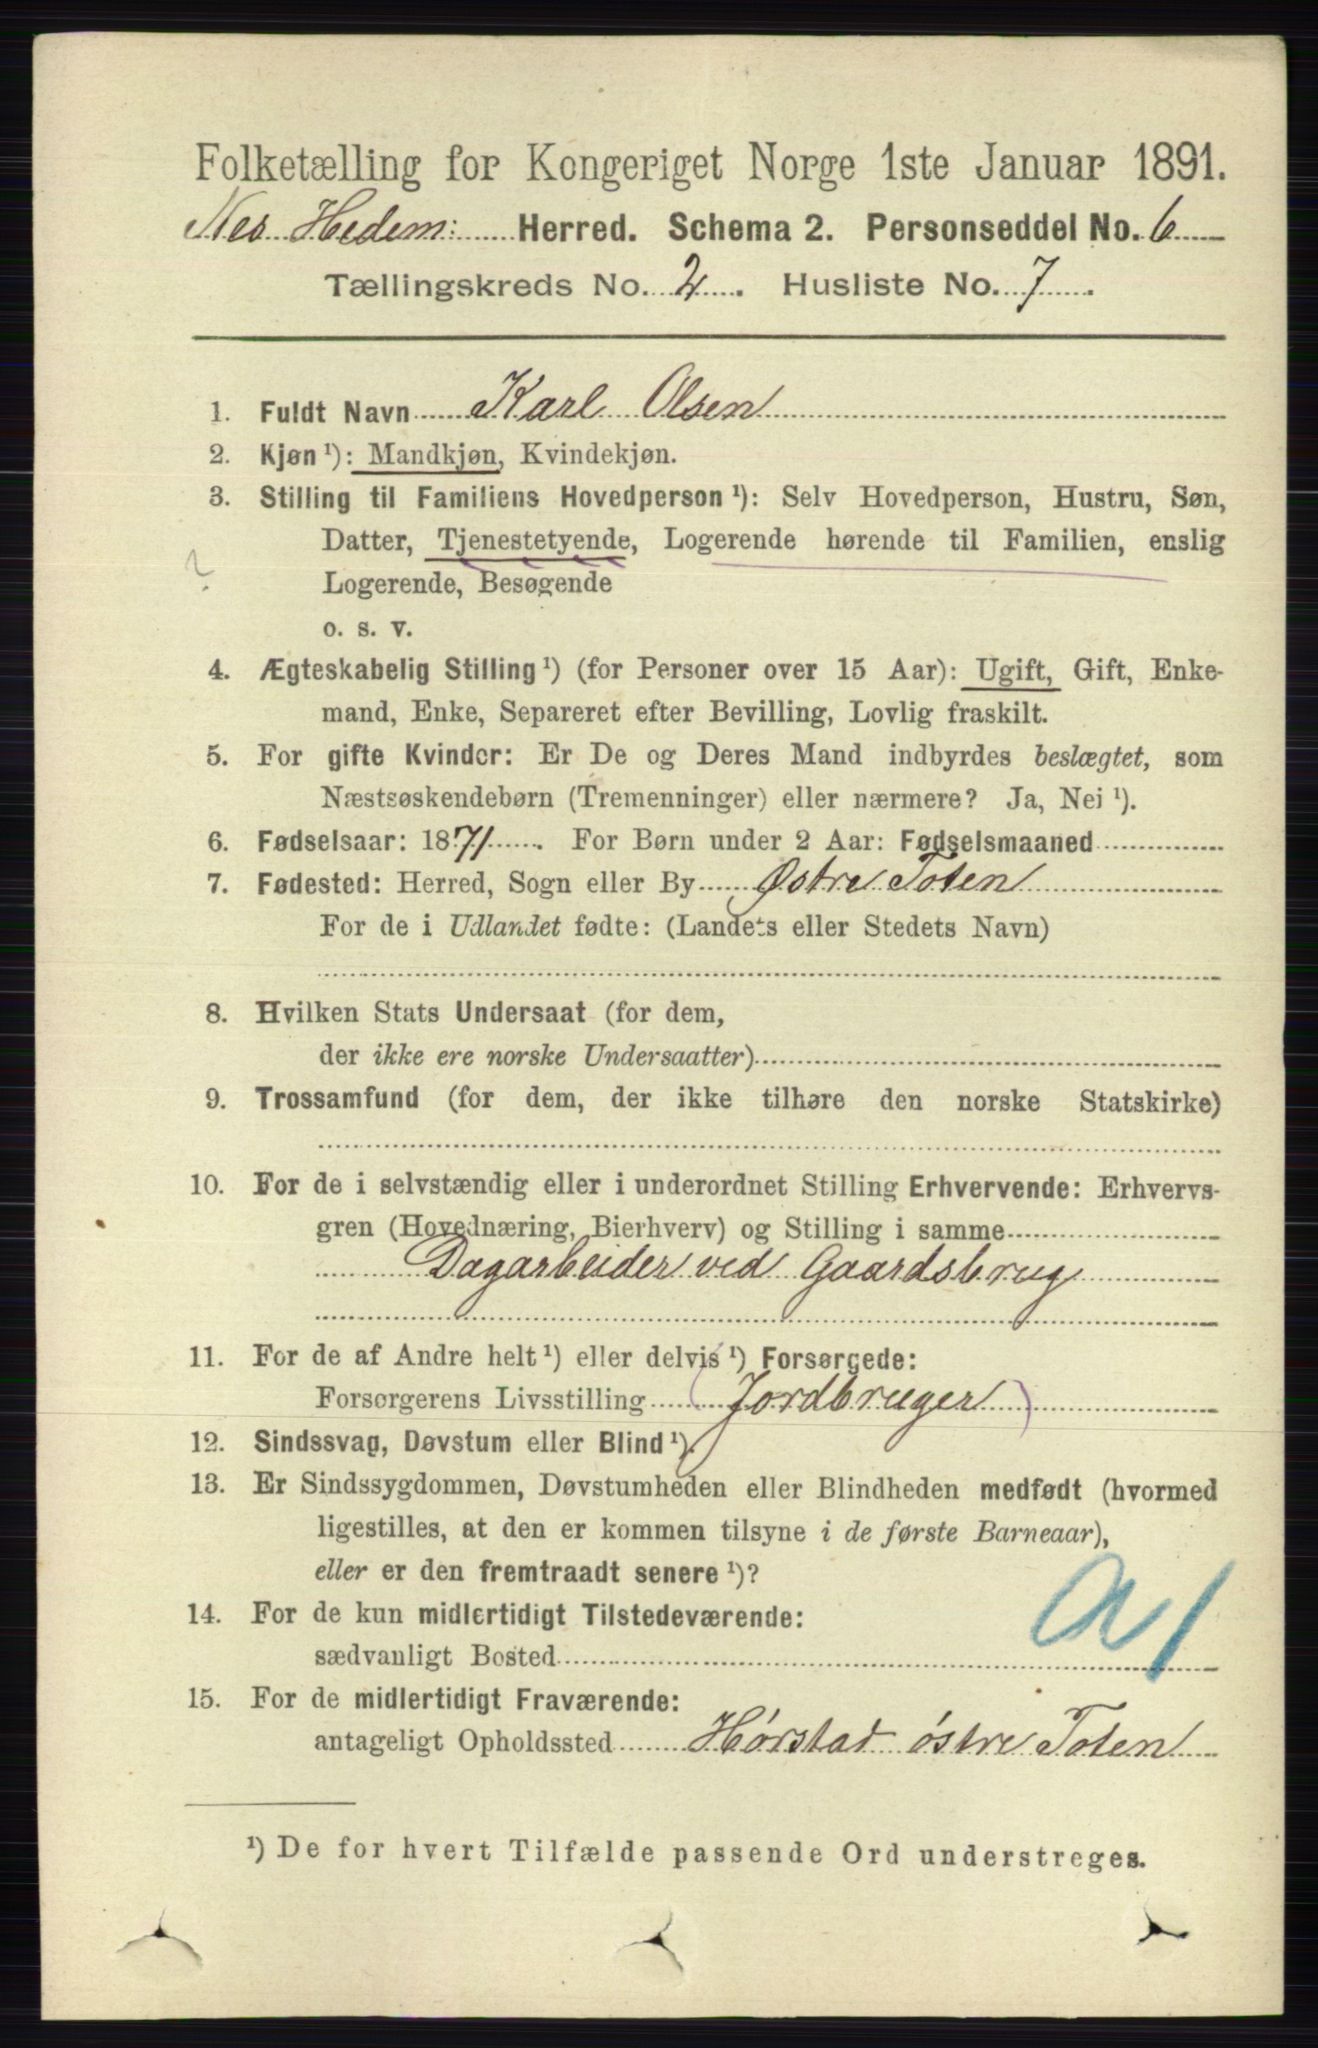 Folketælling for Kongeriget Norge 1ste Januar 1891.
Nes Hedem: Herred. Schema 2. Personseddel No. 6
Tællingskreds No. 2. Husliste No. 7.
1. Fuldt Navn Karl Olsen
2. Kjøn ¹): Mandkjøn, Kvindekjøn.
3. Stilling til Familiens Hovedperson ¹): Selv Hovedperson, Hustru, Søn,
Datter, Tjenestetyende, Logerende hørende til Familien, enslig
? Logerende, Besøgende
o. s. v.
4. Ægteskabelig Stilling ¹) (for Personer over 15 Aar): Ugift, Gift, Enke-
mand, Enke, Separeret efter Bevilling, Lovlig fraskilt.
5. For gifte Kvinder: Er De og Deres Mand indbyrdes beslægtet, som
Næstsøskendebørn (Tremenninger) eller nærmere? Ja, Nei ¹).
6. Fødselsaar: 1871. For Børn under 2 Aar: Fødselsmaaned
7. Fødested: Herred, Sogn eller By Østre Toten
For de i Udlandet fødte: (Landets eller Stedets Navn)
8. Hvilken Stats Undersaat (for dem,
der ikke ere norske Undersaatter)
9. Trossamfund (for dem, der ikke tilhøre den norske Statskirke)
10. For de i selvstændig eller i underordnet Stilling Erhvervende: Erhvervs-
gren (Hovednæring, Bierhverv) og Stilling i samme
Dagarbeider ved Gaardsbrug
11. For de af Andre helt ¹) eller delvis ¹) Forsørgede:
Forsørgerens Livsstilling (Jordbruger)
12. Sindssvag, Døvstum eller Blind ¹).
13. Er Sindssygdommen, Døvstumheden eller Blindheden medfødt (hvormed
ligestilles, at den er kommen tilsyne i de første Barneaar),
eller er den fremtraadt senere ¹)?
a1
14. For de kun midlertidigt Tilstedeværende:
sædvanligt Bosted
15. For de midlertidigt Fraværende:
antageligt Opholdssted Hørstad østre Toten
¹) De for hvert Tilfælde passende Ord understreges.